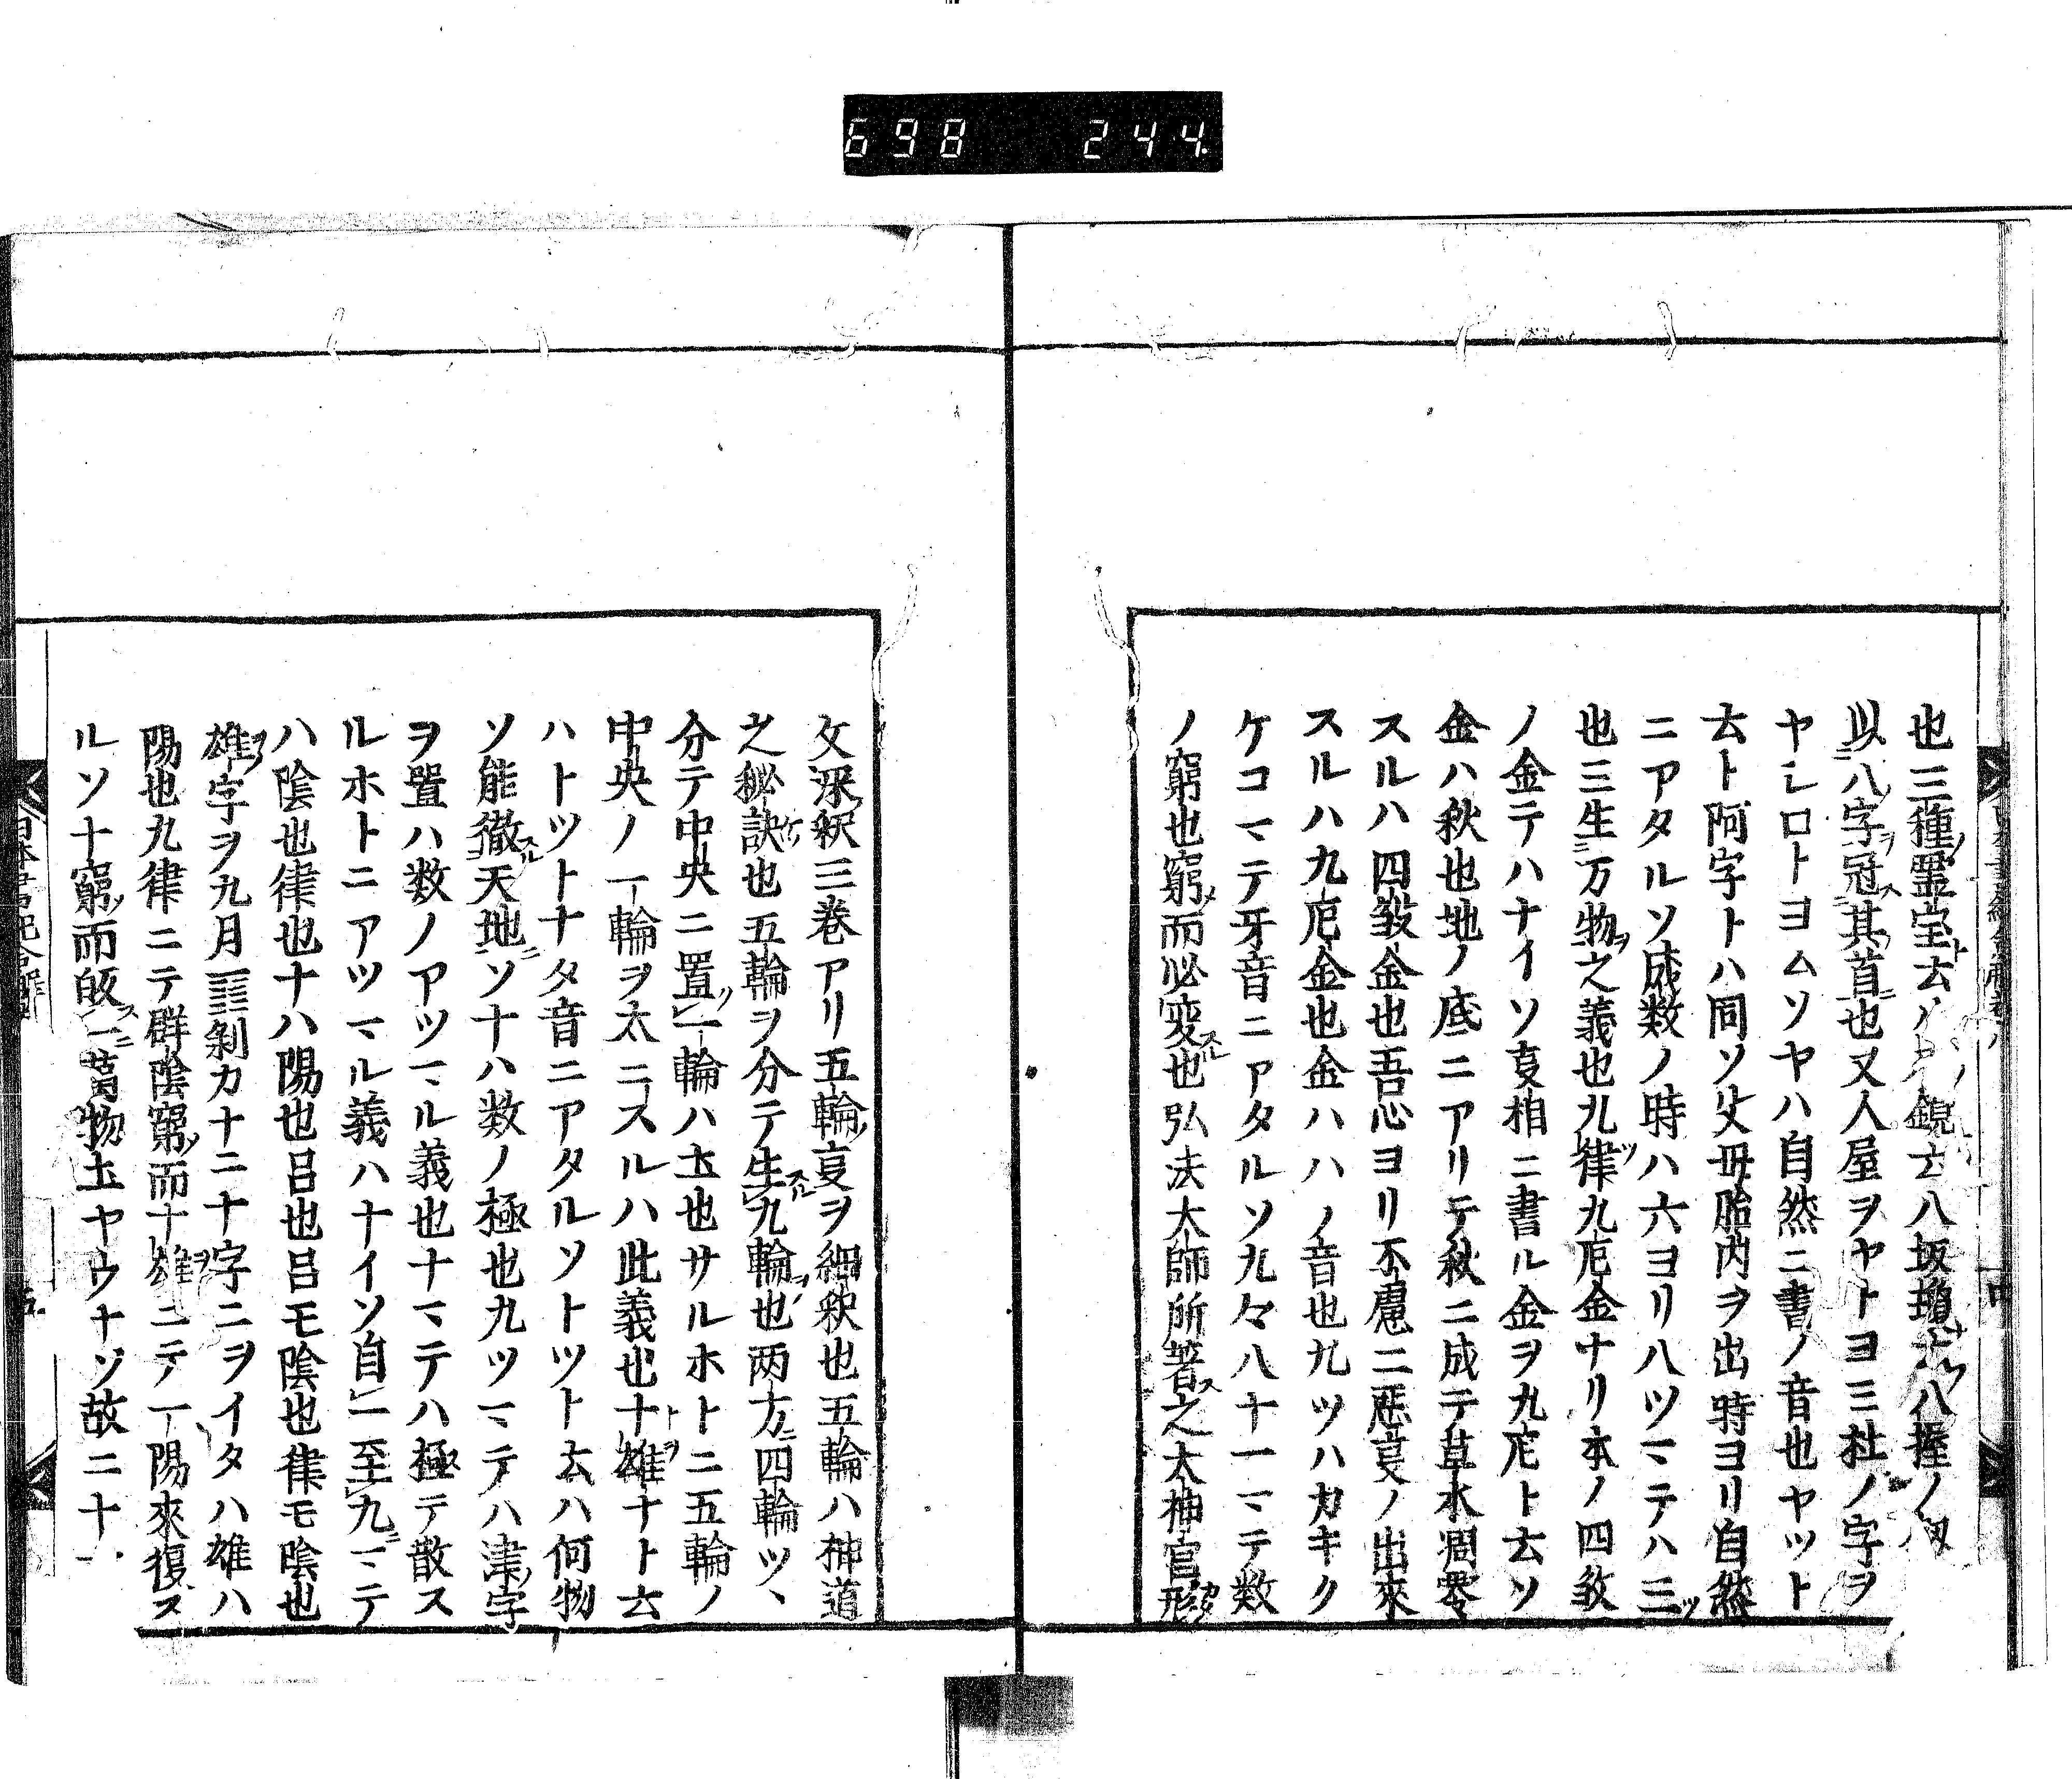 698 244
也三種霊宝云ハ鏡云八坂瓊云八握ノ釼
以八字冠其首也又人屋ヲヤトヨミ社ノ字ヲ
ヤシロトヨムソヤハ自然ニ書ノ音也ヤツト
云ト阿字トハ同ソ父毋胎内ヲ出時ヨリ自然
ニアタルソ成数ノ時ハ六ヨリ八ツマテハ三ツ
也三生万物ヲ之義也九律ツ九厄金ナリ本ノ四敘
ノ金テハナイソ㕝相ニ書ル金ヲ九厄ト云ソ
金ハ秋也地ノ底ニアリテ秋ニ成テ草木凋零
スルハ四殺金也吾心ヨリ不慮ニ悪㕝ノ出來
スルハ九厄金也金ハハノ音也九ツハカキク
ケコマテ牙音ニアタルソ九々八十一マテ数
ノ窮也窮メ而必変スル也弘法大師所著ス之大神官形
文深釈三巻アリ五輪ノ㕝ヲ細釈也五輪ハ神道
之秘訣也五輪ヲ分テ生スル九輪ヲ也两方ニ四輪ツヽ
分テ中央ニ置ク一輪ハ土也サルホトニ五輪ノ
中央ノ一輪ヲ太ニスルハ此義也十雄ヲト云
ハトツトナタ音ニアタルソトツト云ハ何物
ソ能徹スル天地ニソ十ハ数ノ極也九ツマテハ津ノ字
ヲ置ハ数ノアツマル義也十マテハ極テ散ス
ルホトニアツマル義ハナイソ自一至九ニマテ
ハ陰也律也十ハ陽也呂也呂モ陰也律モ陰也
雄ヲ字ヲ九月䷖剝カ十ニ十字ニヲイタハ雄ハ
陽也九律ニテ群陰窮ノ而十雄ヲニテノ一陽來復ス
ルソ十窮ノ而皈ス一ニ萬物土ヤウナゾ故ニ十
日本書紀合解
五